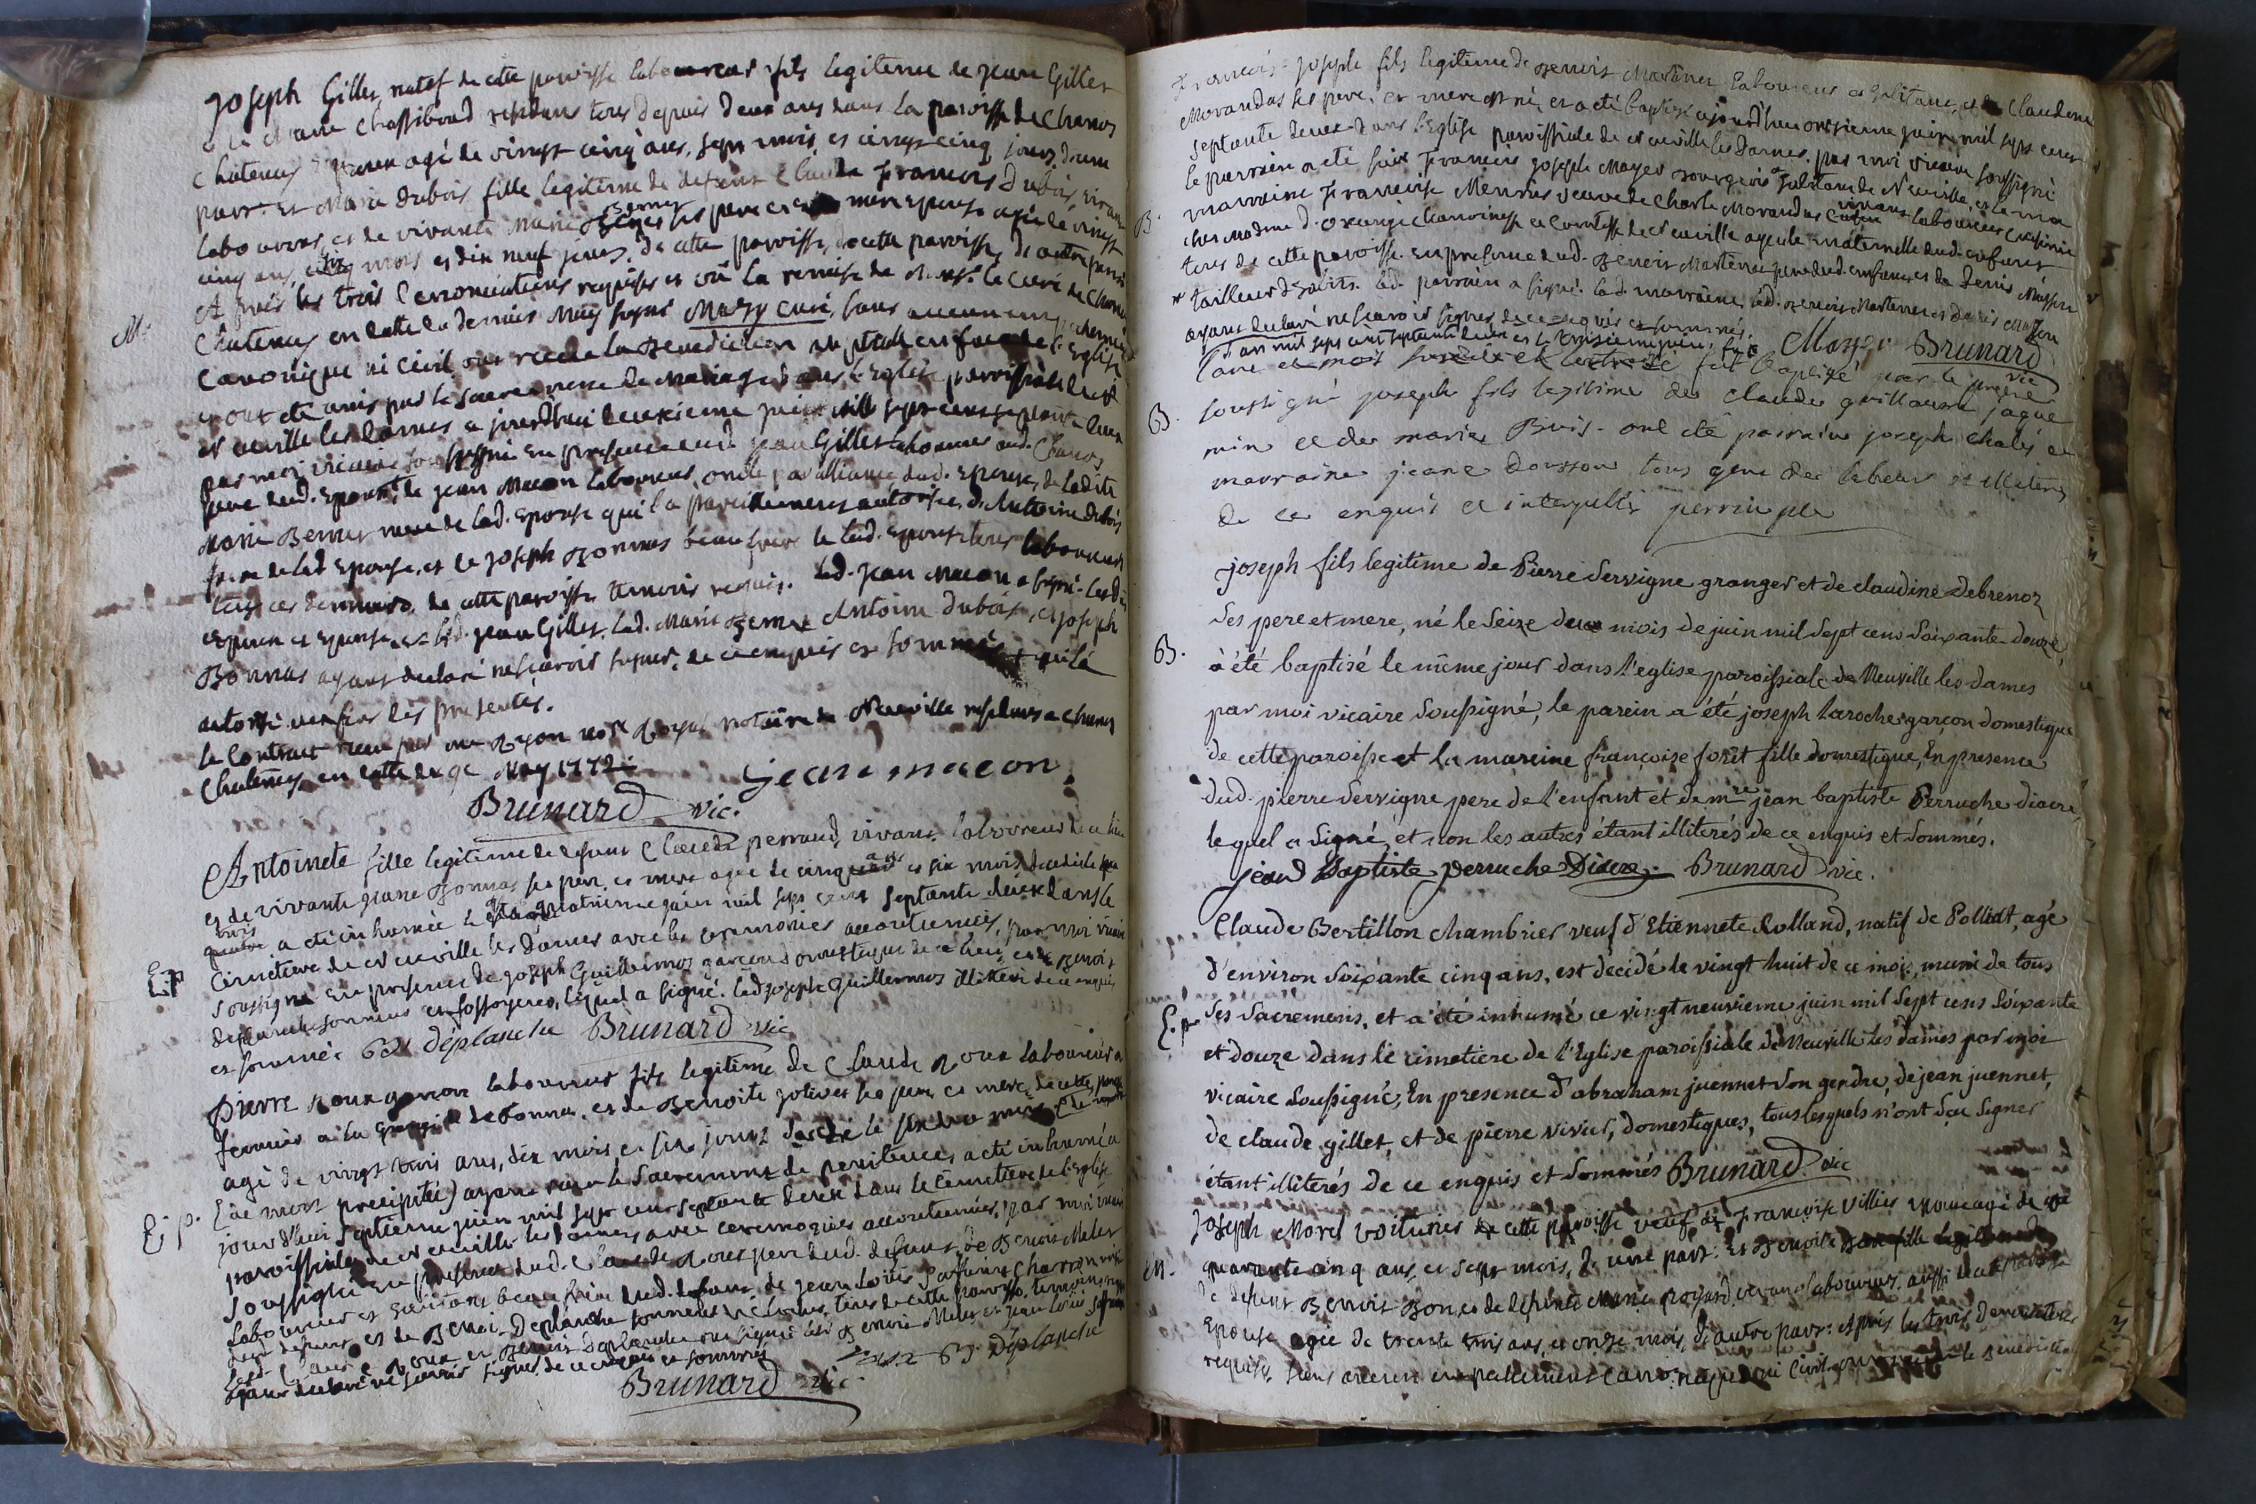 Joseph Gillet natif de cette paroisse laboureur fils legitime de jean Gillet
et de jeane Chassiboud residans tous depuis deux ans dans la paroisse de Chanos
Chatenay epoux agé de vingt cinq ans, sept mois, et vingt cinq jours, d'une
part. Et Marie dubois fille legitime de defunt Claude François dubois, vivant
laboureur, et de vivante Marie Berner ses pere et mere epouse agée de vingt
cinq ans, six mois et dix neuf jours, de cette paroisse, d'autre part.
M.
Apres les trois denonciations requises et vû la remise de Mons. le Curé de Chanos
Chatenay en datte du dernier May signé Mazuy curé, sans aucun empechement
Canonique ni civil ont receu la Benediction nuptiale en face de l'Eglise
et ont été unis par le sacrement de Mariage dans l'Eglise paroissiale de
Neuville les dames aujourdhui deuxieme juin mil sept cens septante deux
par moi vicaire soussigné en presence dud. jean Gillet laboureur aud. Chanos
pere dud. Epoux, de jean Macon laboureur, oncle par alliance dud. Epouse, de ladite
Marie Berner mere de lad. Epouse qui l'a pareillement autorisée, d'Antoine dubois
frere de lad Epouse, et de joseph Bonnas beau frere de lad. Epouse tous laboureurs
tous ces derniers de cette paroisse temoins requis. led. jean Macon a signé. lesd.
epoux et epouse, led. jean Gillet, lad. Marie Berner Antoine dubois, et joseph
Bonnas ayant declaré ne sçavoir signer, de ce enquis et sommés
autorisé
le Contract receu par me Ryon not. Royal notaire de Neuville residant a Chanos
Chatenay en datte du 9e May 1772.
jean macon
Brunard vic.
Antoinete fille legitime de defunt Claude perraud, vivant laboureur de ce lieu
et de vivante jeane Bonnas ses pere et mere agée de cinq ans et six mois decedée le
trois a été inhumée le quatrieme juin mil sept cens septante deux dans le
E.p.
Cimetiere de Neuville les Dames avec les ceremonies accoutumées, par moi vicaire
soussigné en presence de joseph Guillermos garçon domestique de ce lieu, et de Benoit
deplanche sonneur et fossoyeur, lequel a signé. led joseph Guillermos illiteré de ce enquis
et sommé. B. déplanche Brunard vic
Pierre Roux garçon laboureur fils legitime de Claude Roux laboureur et
fermier a la grange de Bonnas, et de Benoite joliver ses pere et mere, de cette paroisse
agé de vingt trois ans, dix mois et six jours decédé le
(de mort precipitée) ayant receu le Sacrement de penitence, a été inhumé
E.p.
jourd'hui septieme juin mil sept cens septante deux dans le Cimetiere de l'Eglise
paroissiale de Neuville les Dames avec ceremonies accoutumées, par moi vicaire
soussigné en presence dud. Claude Roux pere dud. defunt, de Benoit Melet
laboureur et habitant beau frere dud. defunt, de jean Louis charron
dud defunt et de Benoit Deplanche sonneur de cloches, tous de cette paroisse, temoins
led Claude Roux et Benoit Deplanche ont signé led Benoit Melet et jean Louis
ayant declaré ne sçavoir signer, de ce enquis et sommés
B. déplanche
Brunard vic.
François joseph fils legitime de Benoit Martener laboureur et habitant, et de Claudine
Morandas ses pere, et mere est né et a été baptisé aujourd'hui onzieme juin mil sept cens
septante deux dans l'Eglise paroissiale de Neuville les Dames. par moi vicaire soussigné
le parrain a été sieur François joseph Mayer bourgeois habitant de Neuville, et la ma
B.
marraine Françoise Meunier veuve de Charle Morandas vivant laboureur
cher Madme d'Oranzé Chanoinesse et Comtesse de Neuville ayeule maternelle dud. enfant
tous de cette paroisse. en presence dud. Benoit Martener pere dud. enfant, et de Denis Masson
tailleur d'habits. led. parrain a signé. lad. marraine, led. Benoit Martener et Denis Masson
ayant declaré ne sçavoir signer, de ce enquis et sommés.
Mayer Brunard vic
l'an mil sept cent septante deux et le troisieme juin, fut
fut baptizé par le prêtre
B.
soussigné joseph fils legitime de claude guillaume jaque
min et de marie Buis. ont été parrain joseph chalès et
marraine jeane doussou tous gens de labeur et illiterés
de ce enquis et interpellés
joseph fils legitime de Pierre Servigne granger et de claudine debrenoz
ses pere et mere, né le seize du mois de juin mil sept cens soixante douze,
B.
à été baptisé le même jour dans l'eglise paroissiale de Neuville les dames
par moi vicaire soussigné, le parein a été joseph laroche garçon domestique
de cette paroisse et la mareine françoise forêt fille domestique, En presence
dud. pierre servigne pere de l'enfant et de mre jean baptiste Perruche diacre,
lequel a signé, et non les autres étant illiterés de ce enquis et sommés.
jean Baptiste perruche Diacre. Brunard vic.
Claude Bertillon chambrier veuf d'Etiennete Rolland, natif de Polliat, agé
d'environ soixante cinq ans, est décédé le vingt huit de ce mois, muni de tous
E.p.
sés sacremens, et a été inhumé ce vingt neuvieme juin mil sept cens soixante
et douze dans le cimetiere de l'Eglise paroissiale de Neuville les dames par moi
vicaire soussigné, En presence d'abraham juennet son gendre, de jean juennet,
de claude gillet, et de pierre vivier, domestiques, tous lesquels n'ont sçu signer
étant illiterés de ce enquis et sommés Brunard vic
Joseph Morel voiturier de cette paroisse veuf de Françoise Villier epoux agé de
quarante cinq ans, et sept mois, d'une part. Et Benoite Bon fille legitime
M.
de defunt Benoit Bon, et de defunte Marie poyard, vivant laboureur, aussi de cette paroisse
epouse agée de trente trois ans, et onze mois, d'autre part: Apres les trois denonciations
requises, sans aucun empechement canonique ni Civil ont receu la benediction